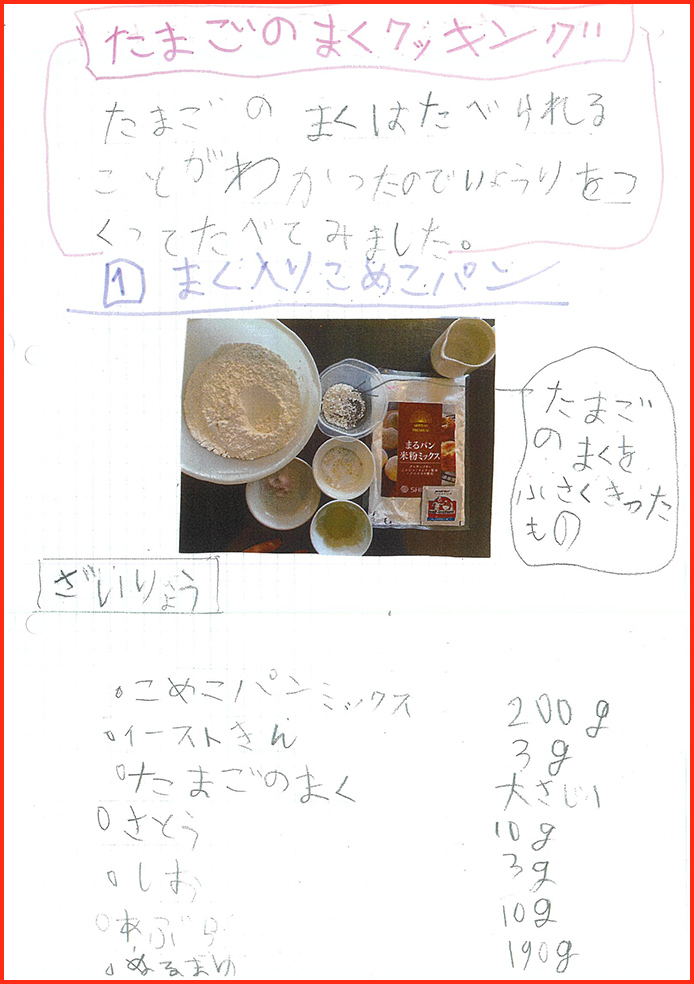 たまごのまくクッキング
たまごの まくはたべられる
ことがわかったのでりょうりをつ
くってたべてみました。
1 まく入りこめこパン
まるパン
米粉ミックス
たまご
のまくを
小さくきった
もの
ざいりょう
・こめこパンミックス 200g
・イーストきん 3g
・たまごのまく 大さじ1
・さとう 10g
・しお 3g
・あぶら 10g
・ぬるまゆ 190g